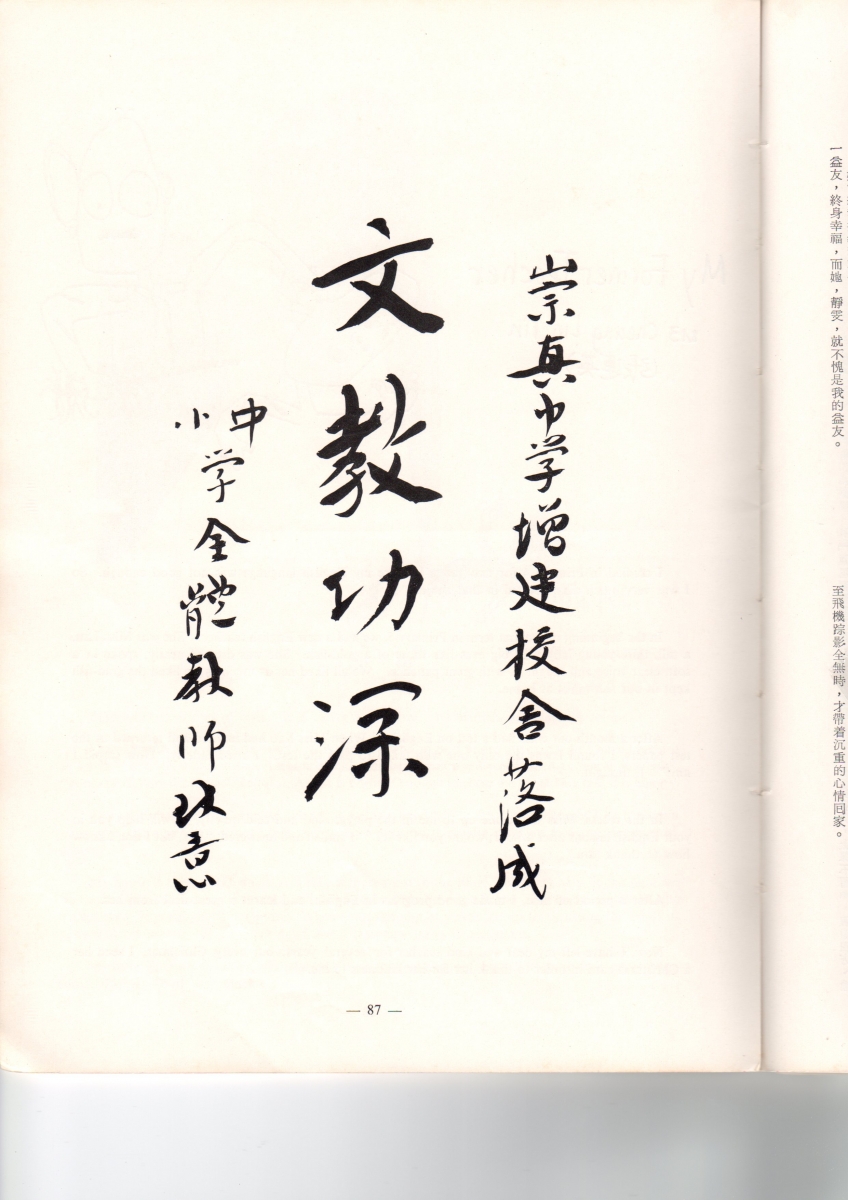 一益友，終身幸福，而，靜雯，就不愧是我的益友。
至飛機踪影全無時，才帶着沉重的心情囘家。
崇真中学增建校舍落成
文教功深
中小学全體教師致意
— 87 —